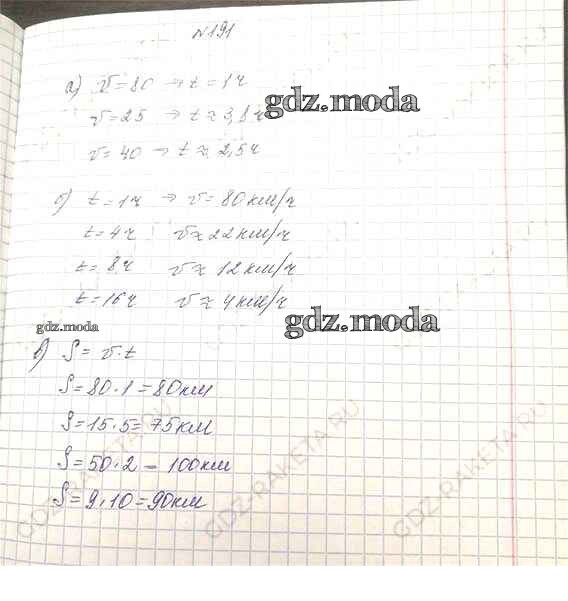 №191
а) v=80 → t=1ч
gdz.moda
v=25 → t≈3,8ч
v=40 → t≈2,5ч
б) t=1ч → v=80км/ч
t=4ч v≈22км/ч
t=8ч v≈12км/ч
t=16ч v≈4км/ч
gdz.moda
gdz.moda
в) S=v·t
S=80·1=80км
S=15·5=75км
S=50·2=100км
S=9·10=90км
GDZ-RAKETA.RU
GDZ-RAKETA.RU
GDZ-RAKETA.RU